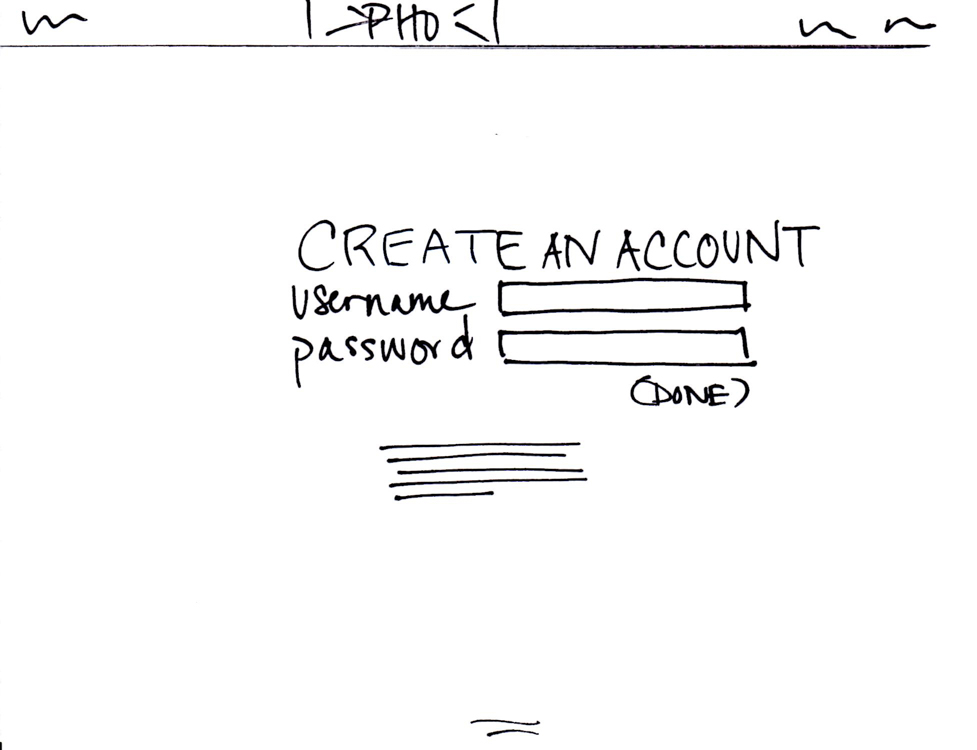 >PHO<
CREATE AN ACCOUNT
username
password
(DONE)